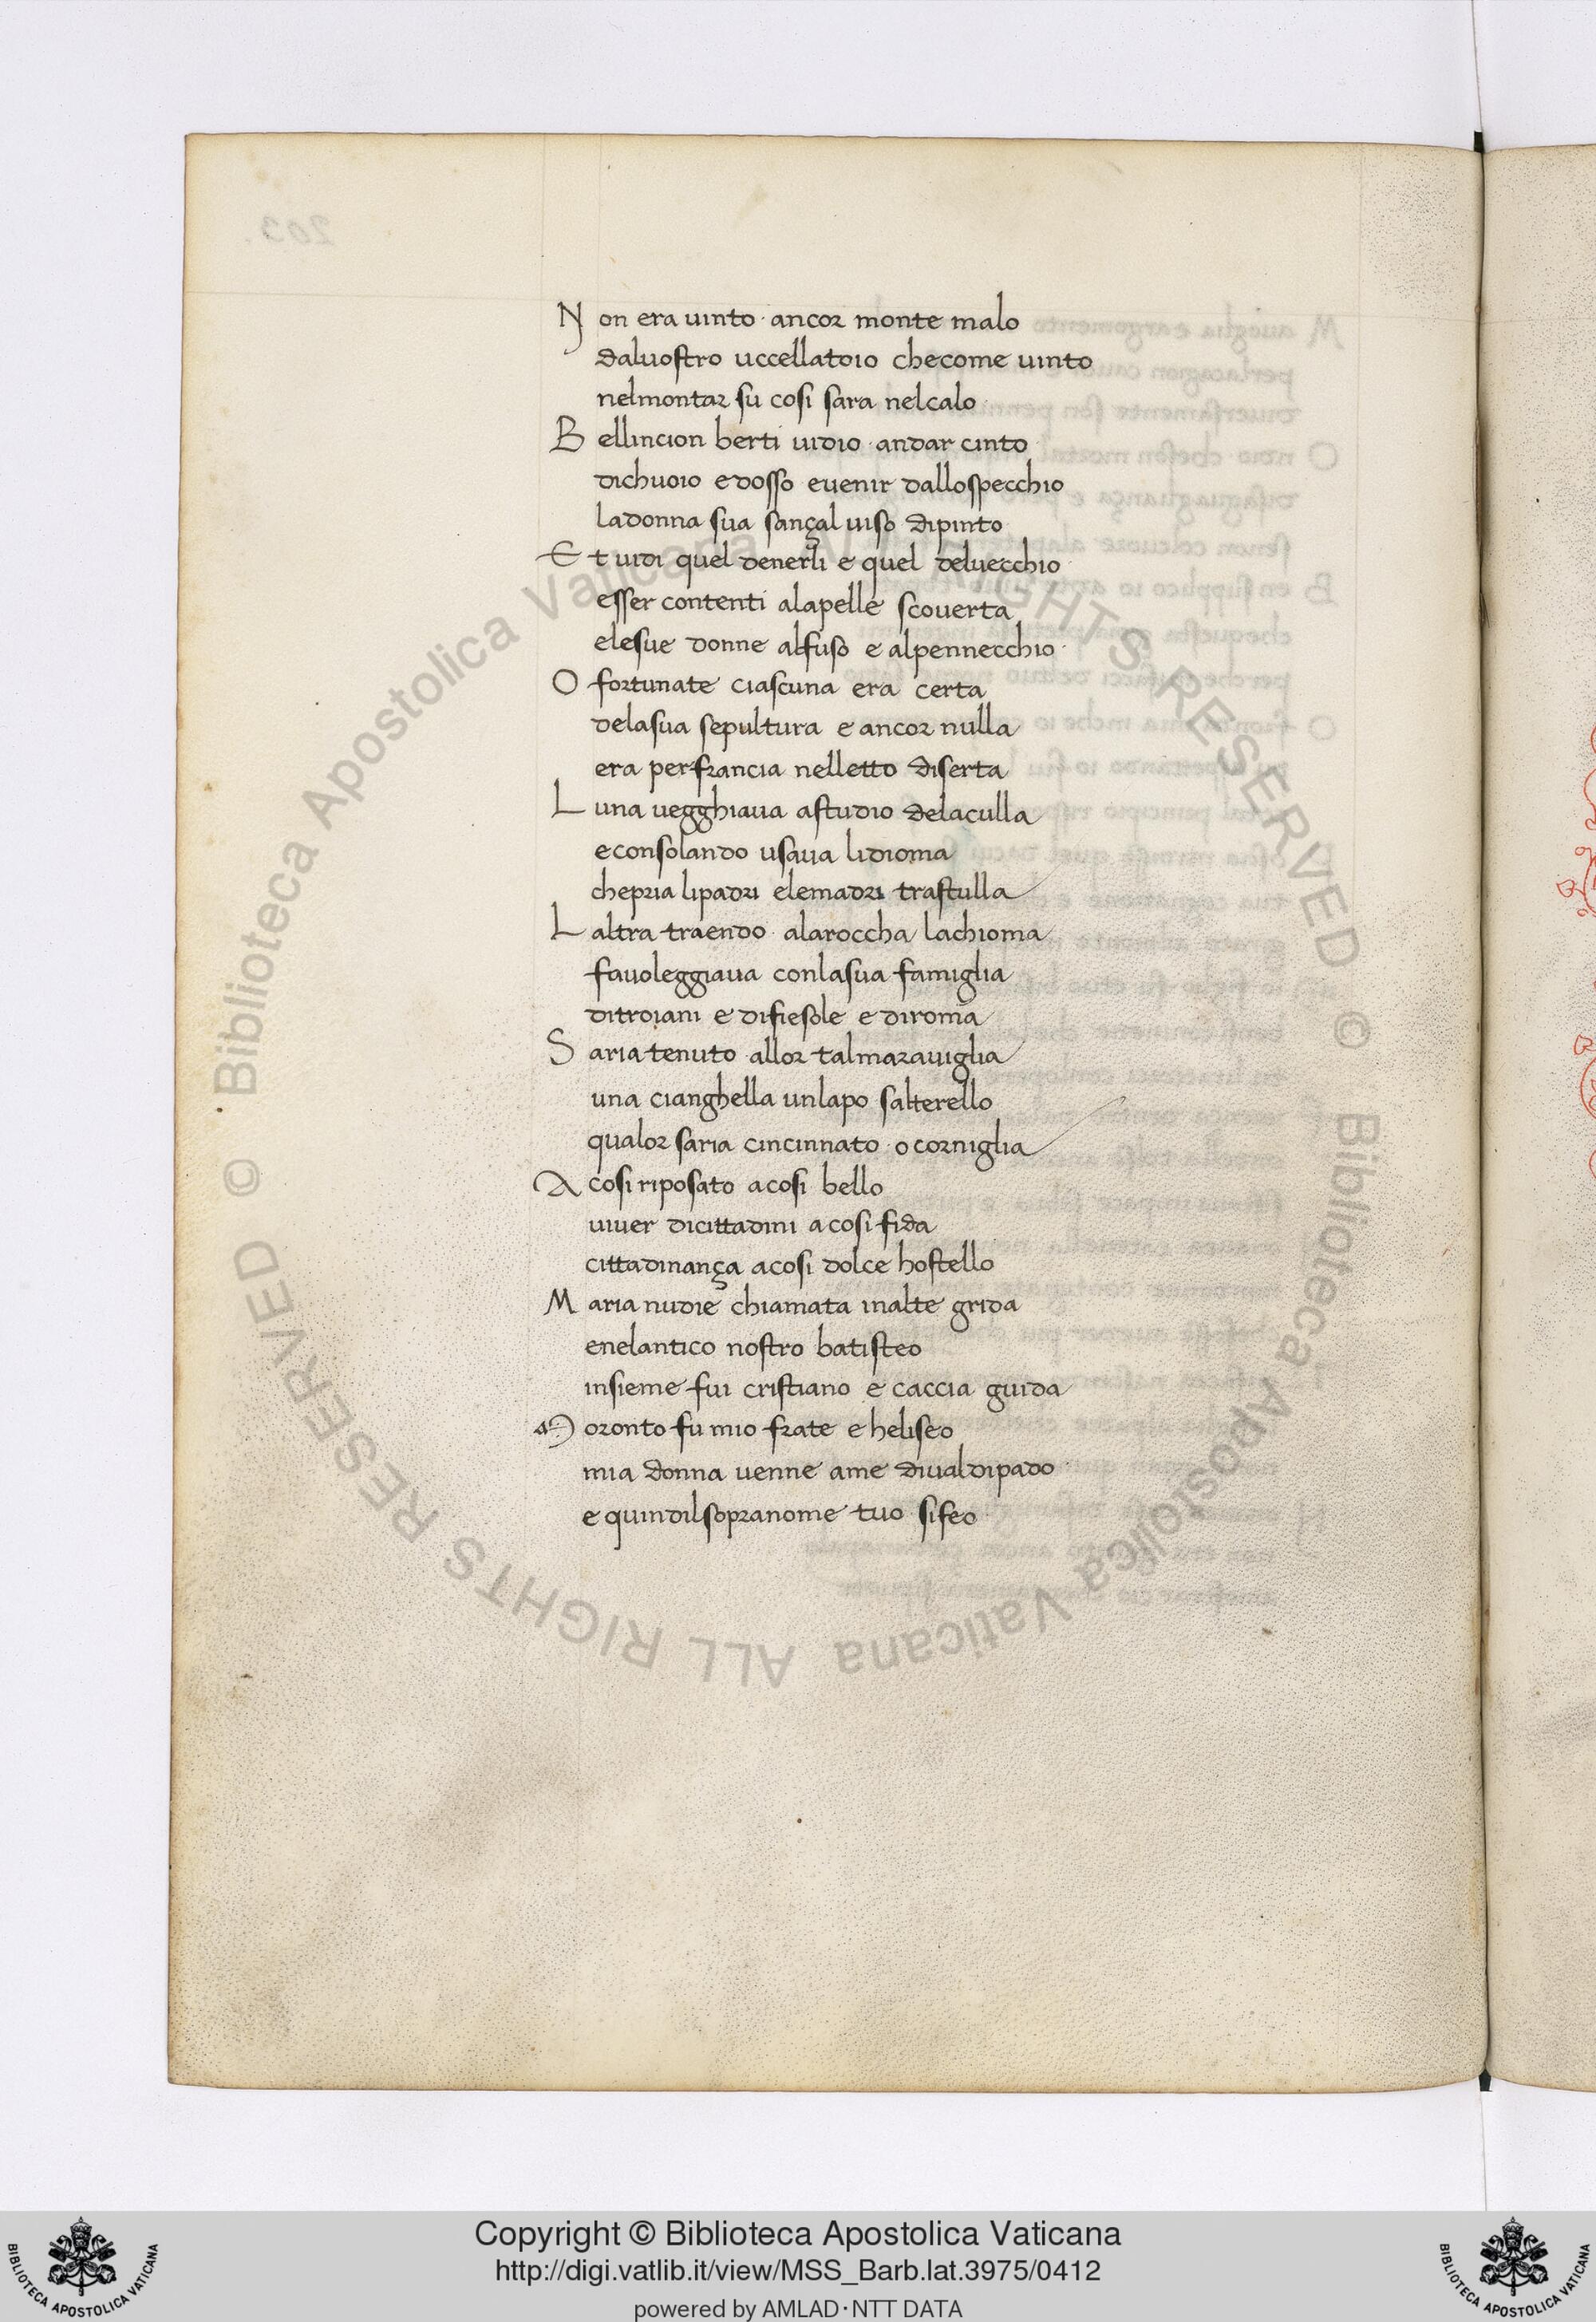 Non era uinto ancor monte malo
daluostro uccellatoio checome uinto
nelmontar su cosi sara nelcalo
Bellincion berti uidio andar cinto
dichuoio edosso euenir dallospecchio
ladonna sua sançal uiso dipinto
Et uidi quel denerli e quel deluecchio
esser contenti alapelle scouerta
elesue donne alfuso e alpennecchio
O fortunate ciascuna era certa
delasua sepultura e ancor nulla
era perfrancia nelletto diserta
Luna uegghiaua astudio delaculla
econsolando usaua lidioma
chepria lipadri elemadri trastulla
Laltra traendo alaroccha lachioma
fauoleggiaua conlasua famiglia
ditroiani e difiesole e diroma
Saria tenuto allor talmarauiglia
una cianghella unlapo salterello
qualor saria cincinnato ocorniglia
A cosi riposato acosi bello
uiuer dicittadini acosi fida
cittadinança acosi dolce hostello
Maria nudie chiamata inalte grida
enelantico nostro batisteo
insieme fui cristiano e caccia guida
Moronto fu mio frate e heliseo
mia donna uenne ame diualdipado
e quindilsopranome tuo sifeo
203.
© Biblioteca Apostolica Vaticana ALL RIGHTS RESERVED © Biblioteca Apostolica Vaticana ALL RIGHTS RESERVED
Copyright © Biblioteca Apostolica Vaticana
http://digi.vatlib.it/view/MSS_Barb.lat.3975/0412
powered by AMLAD·NTT DATA
BIBLIOTECA APOSTOLICA VATICANA
BIBLIOTECA APOSTOLICA VATICANA